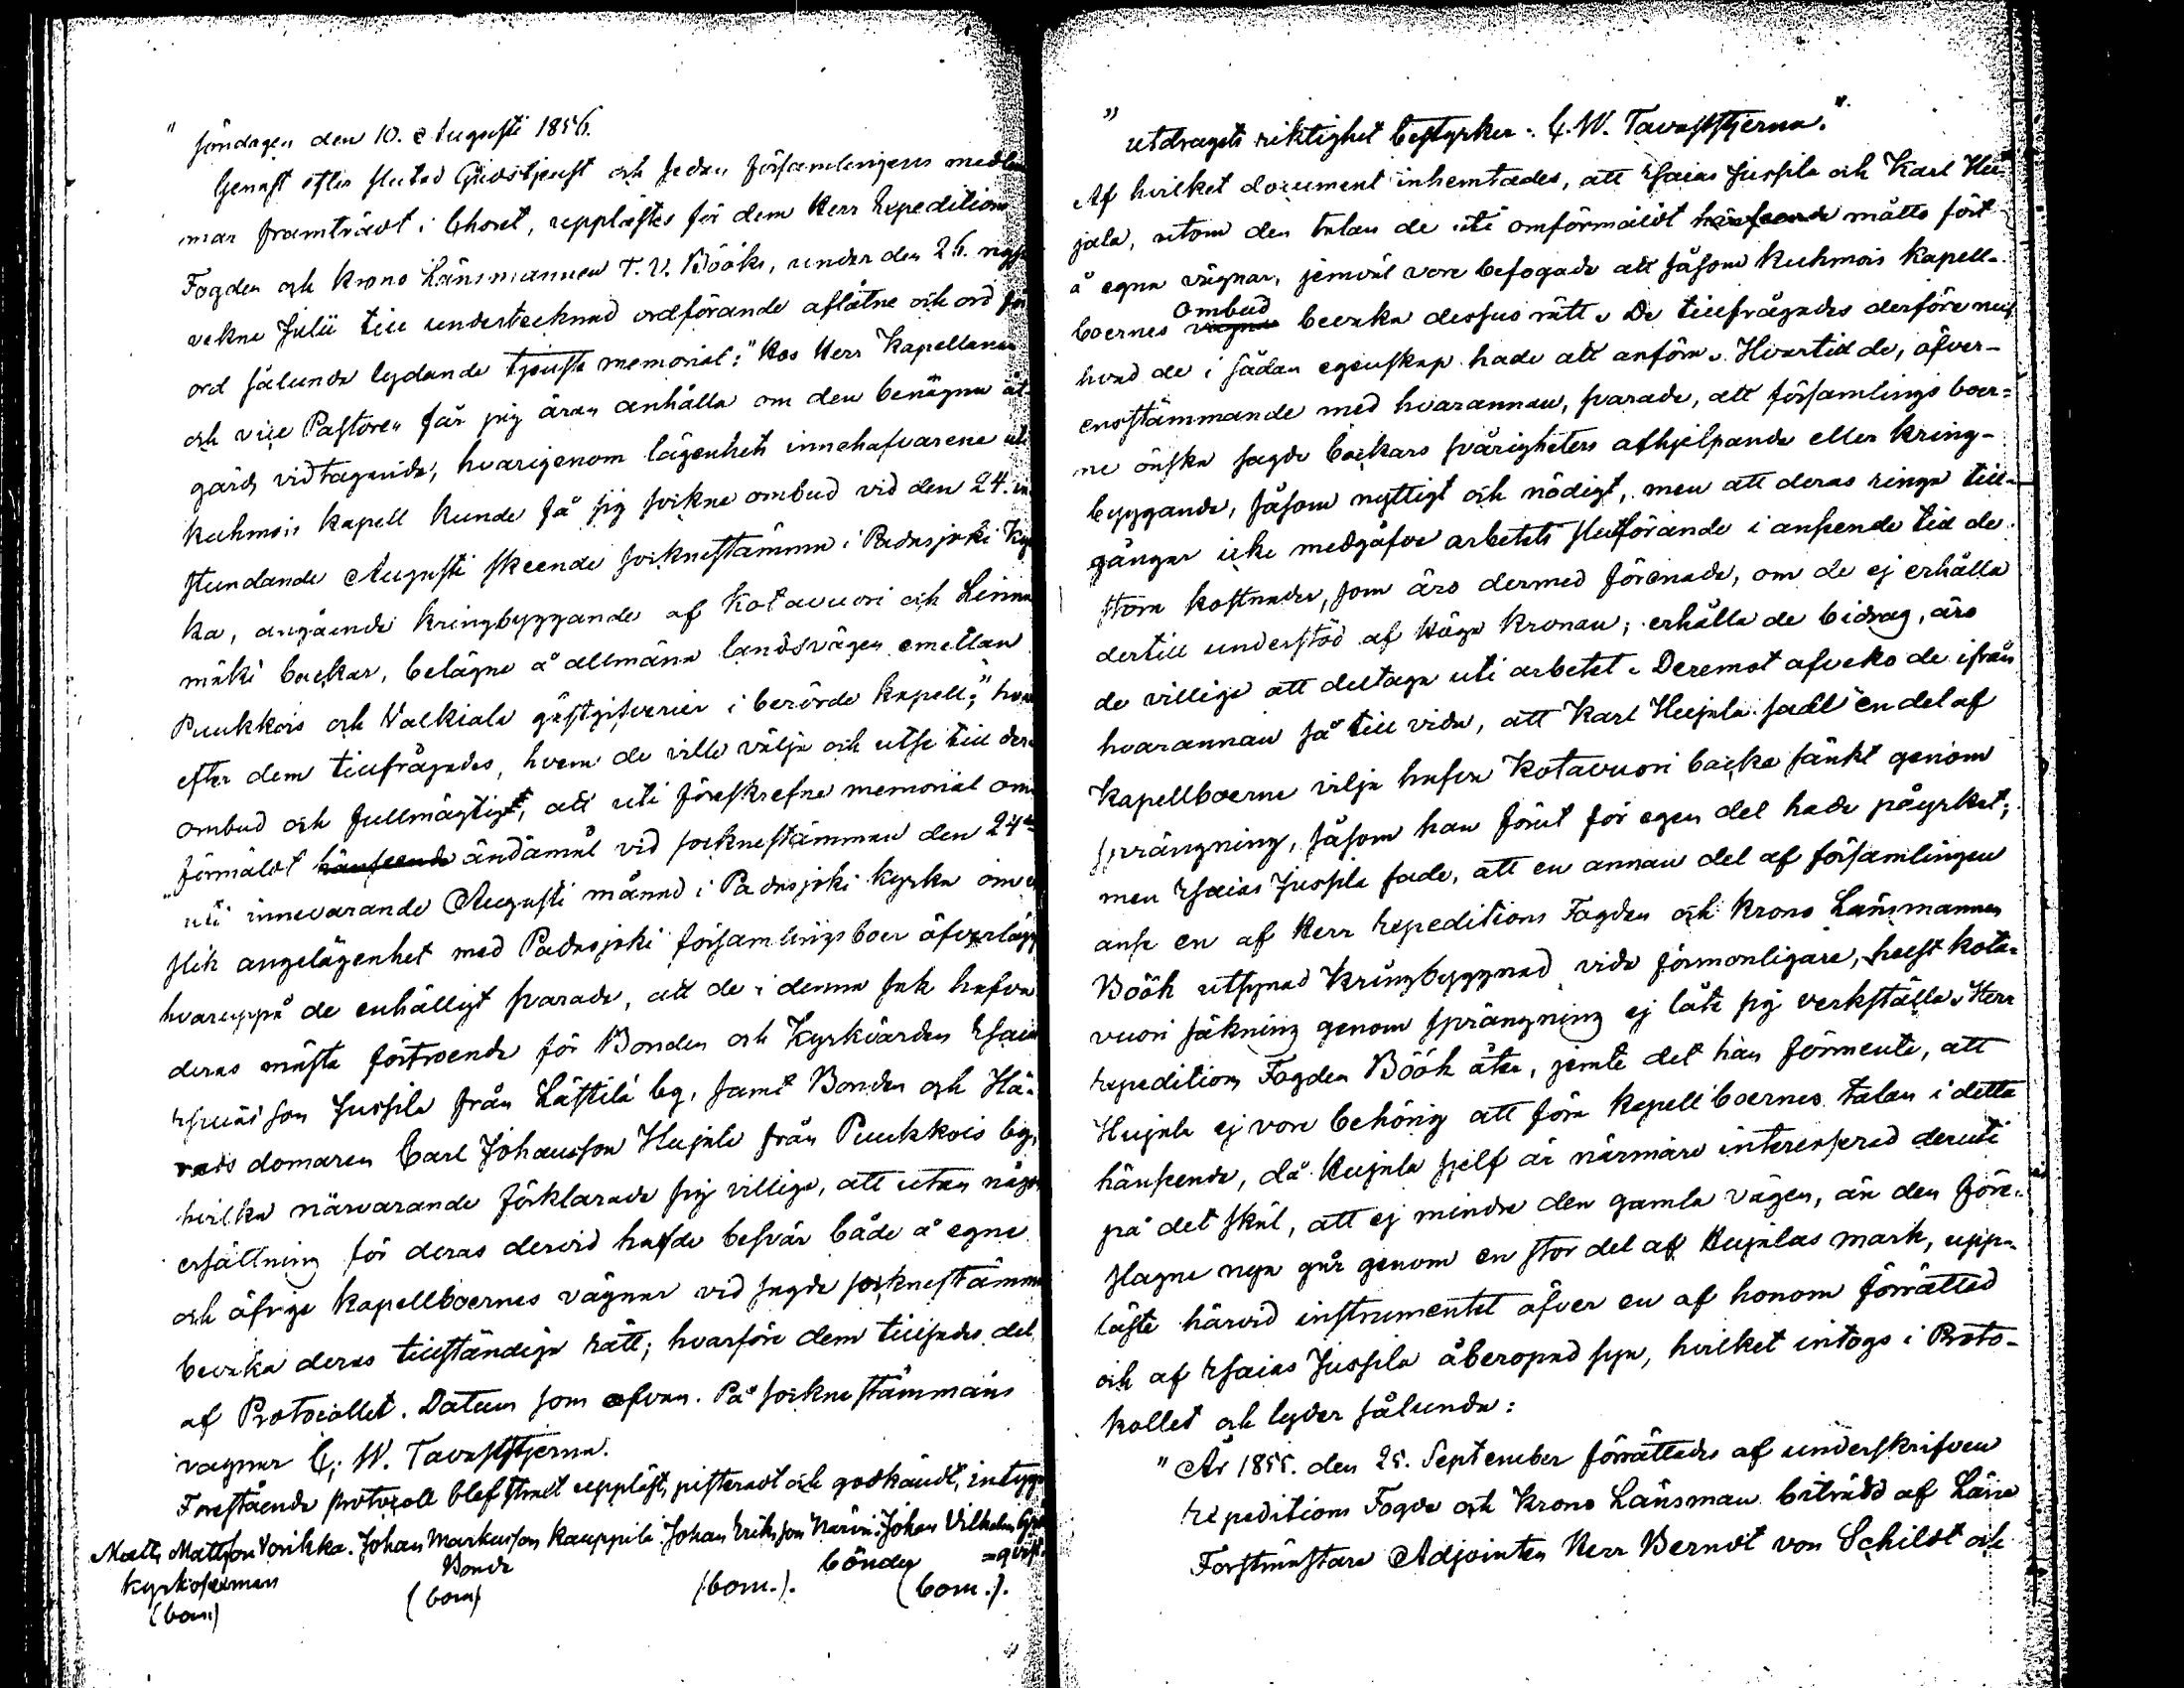 " Söndagen den 10. Augusti 1856.
Genast efter slutad Gudstjenst och sedan församlingens medlem
mar framträdt i Choret, upplästes för dem Herr Expeditions
Fogden och krono Länsmannen T. V. Bööks, under den 26. nyss
vekne Julii till undertecknad ordförande aflåtne och ord för
ord sålunda lydande tjenste memorial: "Hos Herr Kapellanen
och vice Pastoren får jag äran anhålla om den benägna åt-
gärds vidtagande, hvarigenom lägenhets innehafvarene uti
Kuhmois kapell kunde få sig sockne ombud vid den 24. in
stundande Augusti skeende socknestämma i Padasjoki Kyr
ka, angående kringbyggande af Kotavuori och Linna
mäki backar, belägne å allmänna landsvägen emellan
Puukkois och Walkiala gästgifverier i berörde kapell;" hvar
efter dem tillfrågades, hvem de ville välja och utse till deras
ombud och fullmägtigt, att uti föreskrefne memorial om
förmäldt hänseende ändamål vid socknestämman den 24de
uti innevarande Augusti månad i Padasjoki kyrka om en
slik angelägenhet med Padasjoki församlingsboer öfverlägga
hvaruppå de enhälligt svarade, att de i denna sak hafva
deras mästa förtroende för Bonden och Kyrkvärden Esaias
Esaias son Jussila från Lästilä by, samt Bonden och Hä-
rads domaren Carl Johansson Hujala från Puukkois by,
hvilka närvarande förklarade sig villige, att utan någon
ersättning för deras dervid hafde besvär både å egne
och öfrige kapellboernes vägnar vid sagde socknestämma
bevaka deras tillständiga rätt; hvarföre dem tillsades del
af Protocollet. Datum som ofvan. På sockne stämmans
vägnar C. W. Tavaststjerna.
Forestående protocoll blef straxt uppläst, justeradt och godkändt, intyga
Matts Mattsson Vorikka. Johan Markusson Kauppila Johan Eriksson Närvä. Johan Vilhelm
Kyrkosexman Bonde bönder
(bom.) (bom) (bom.). (bom.).
" utdragets riktighet bestyrker: C. W. Tavaststjerna."
Af hvilket document inhemtades, att Esaias Jussila och Karl Hu-
jala, utom den talan de uti omförmäldt hänseende måtte fört
å egna vägnar, jemväl vore befogade att såsom Kuhmois kapell-
boernes vägnar ombud bevaka dessas rätt. De tillfrågades derföre nu,
hvad de i sådan egenskap hade att anföra. Hvartill de, öfver-
ensstämmande med hvarannan, svarade, att församlings boer-
ne önska sagde backars svårigheters afhjelpande eller kring-
byggande, såsom nyttigt och nödigt, men att deras ringa till-
gångar icke medgåfve arbetets slutförande i anseende till de
stora kostnader, som äro dermed förenade, om de ej erhålla
dertill understöd af Höga Kronan; erhålla de bidrag, äro
de villige att deltaga uti arbetet. Deremot afveko de ifrån
hvarannan så till vida, att Karl Hujala sade en del af
Kapellboerne vilja hafva Kotavuori backe sänkt genom
sprängning, såsom han förut för egen del hade påyrkat;
men Esaias Jussila sade, att en annan del af församlingen
anse en af Herr Expeditions Fogden och Krono Länsmannen
Böök utsynad Kringbyggnad vida förmonligare, helst Kota-
vuori säkning genom sprängning ej läte sig verkställa. Herr
Expeditions Fogden Böök åter, jemte det han förmente, att
Hujala ej vore behörig att föra kapellboernes talan i detta
hänseende, då Hujala sjelf är närmare interesserad deruti
på det skäl, att ej mindre den gamla vägen, än den före-
slagne nya går genom en stor del af Hujalas mark, upp-
läste härvid instrumentet öfver en af honom förrättad
och af Esaias Jussila åberopad syn, hvilket intogs i Proto-
kollet och lyder sålunda:
" År 1855. den 25. September förrättades af underskrifven
Expeditions Fogde och Krono Länsman biträdd af Läns
Forstmästare Adjointen Herr Berndt von Schildt och